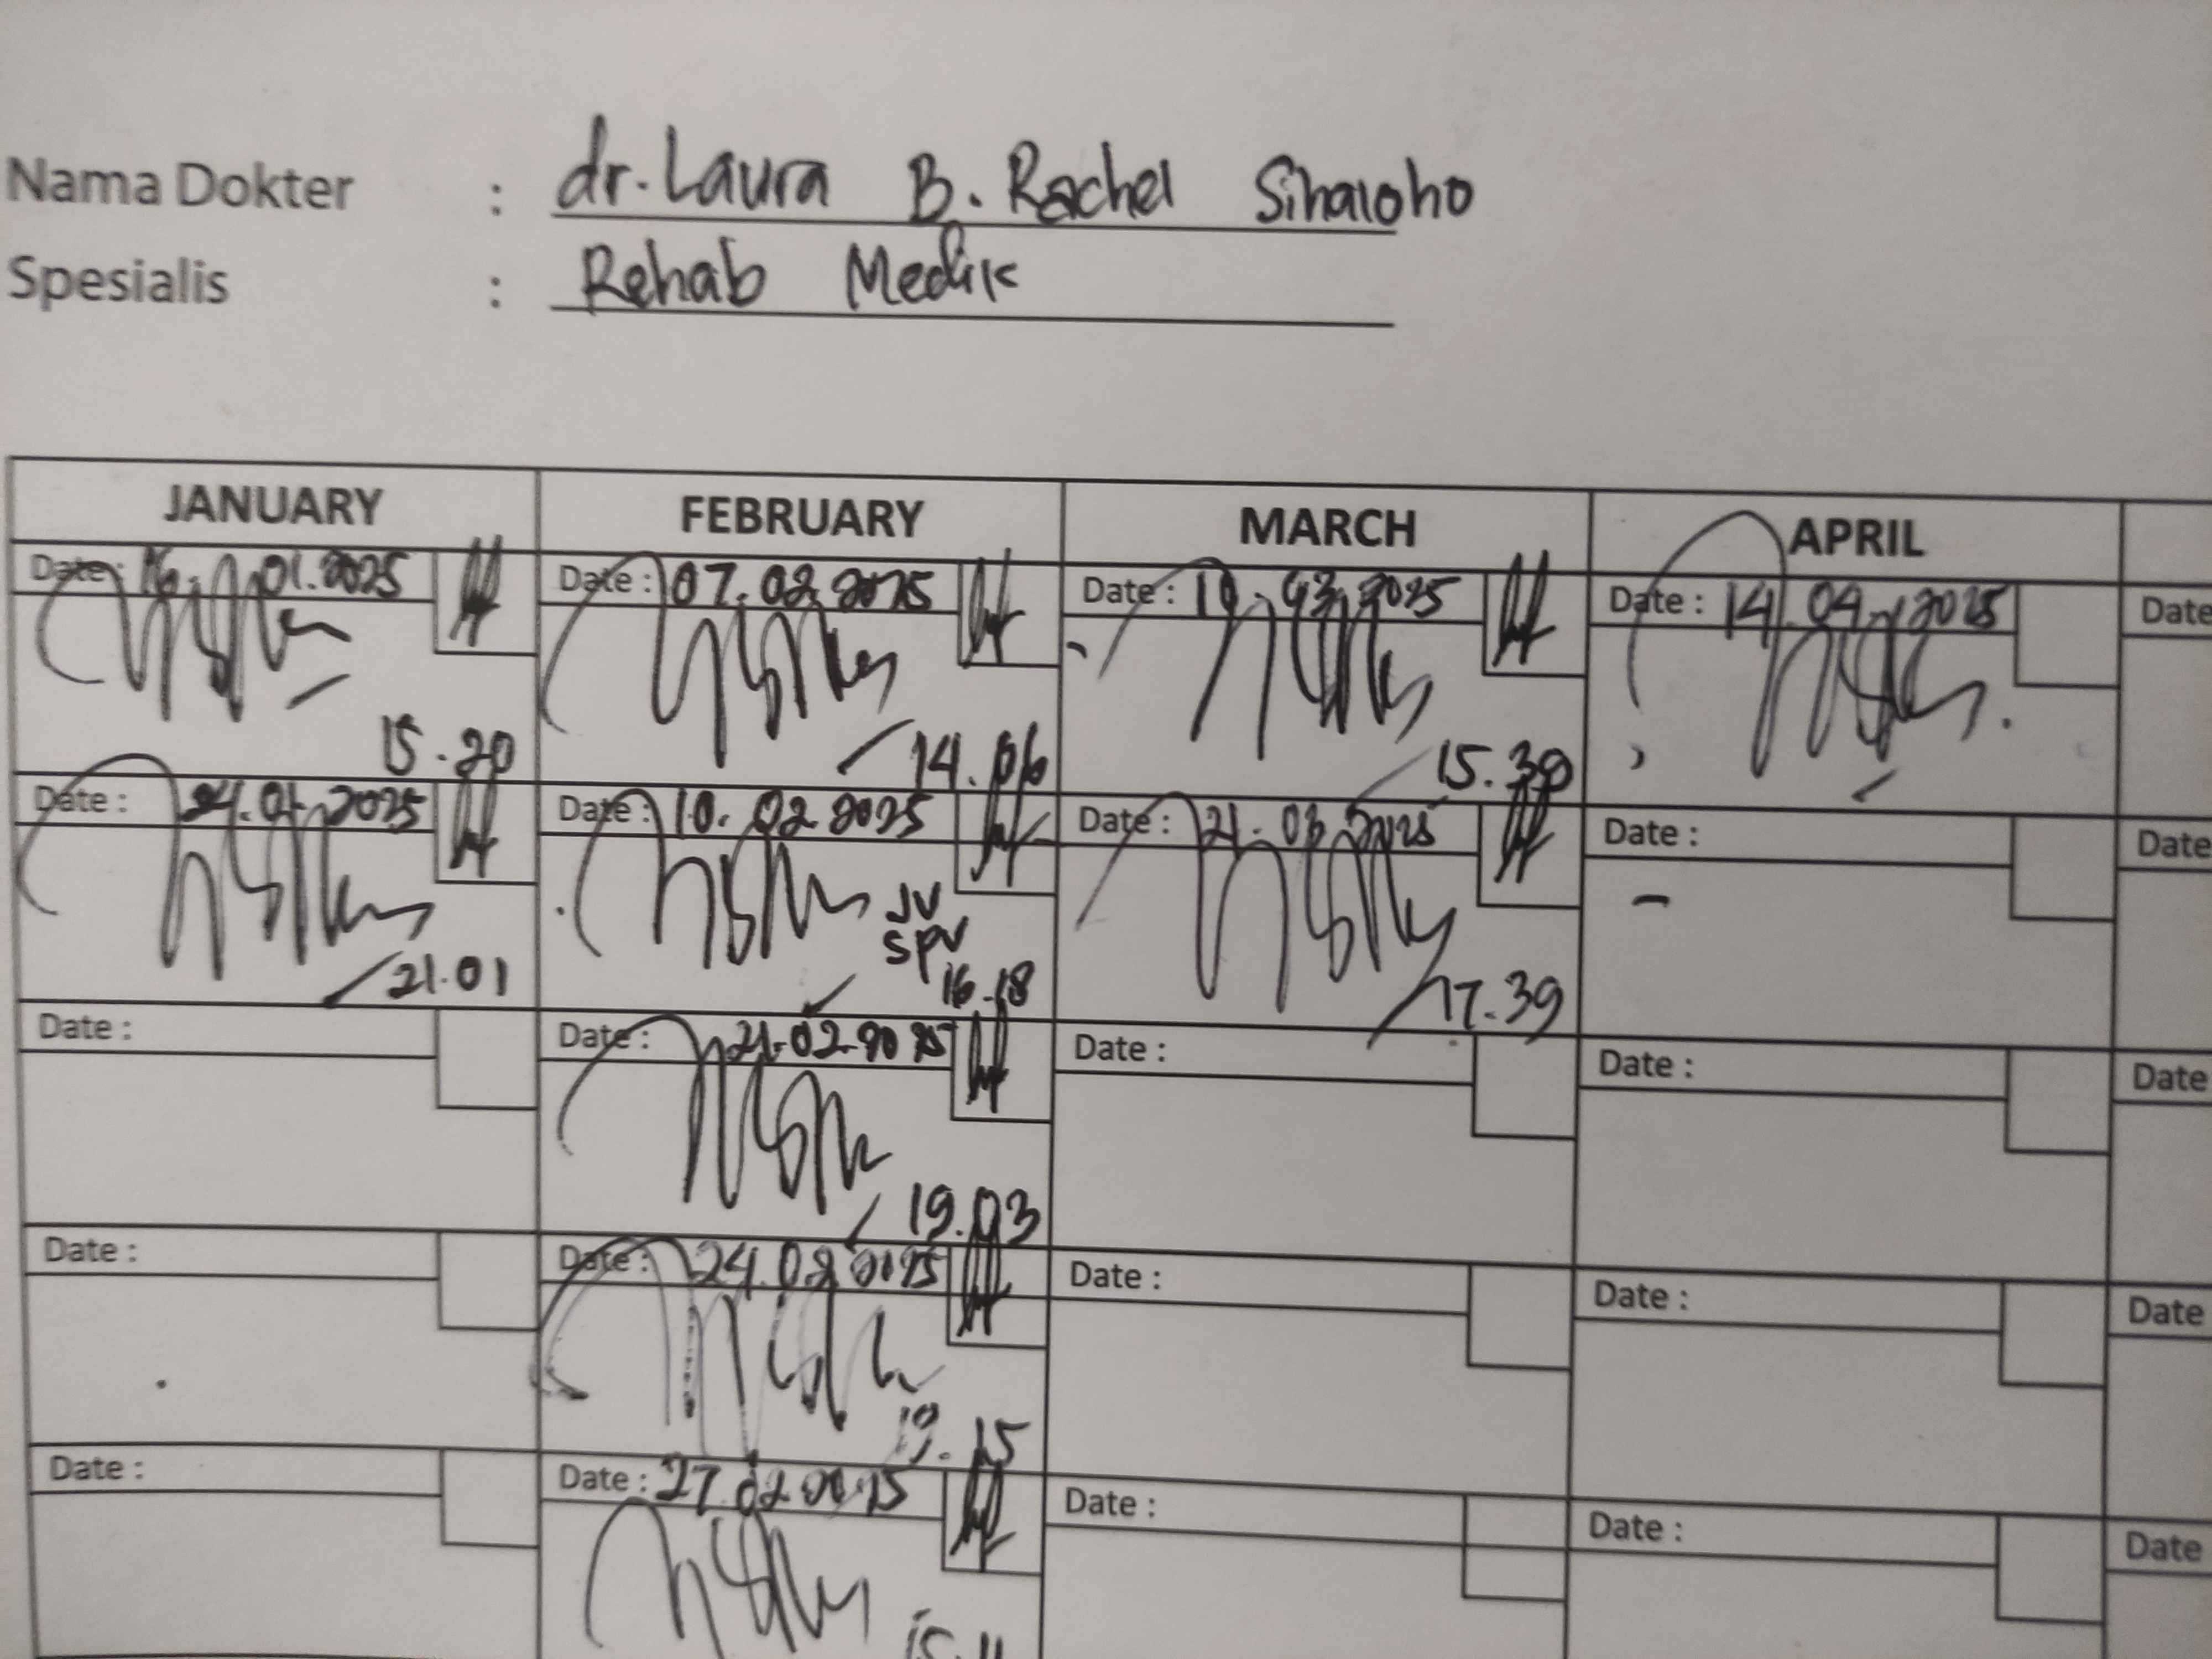 Nama Dokter : dr. Laura B. Rachel Sihaloho
Spesialis : Rehab Medik
JANUARY FEBRUARY MARCH APRIL
Date: 16. 01. 2025 Date : 07. 02. 2025 Date : 10. 03. 2025 Date : 14. 04. 2025 Date
15.20 14.06 15.39
Date : 24. 01. 2025 Date : 10. 02 2025 Date : 21. 03 2025 Date : Date
JV
SPV
21.01 16.18 17.39
Date : Date : 21.02.2025 Date : Date : Date
19.03
Date : Date : 24.02 2025 Date : Date : Date
19.15
Date : Date : 27.02 2025 Date : Date : Date